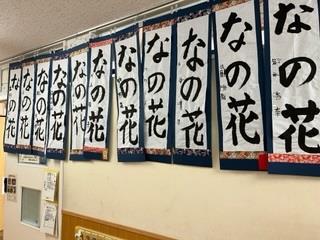 なの花
なの花
なの花
なの花
なの花
なの花
なの花
なの花
なの花
なの花
なの花